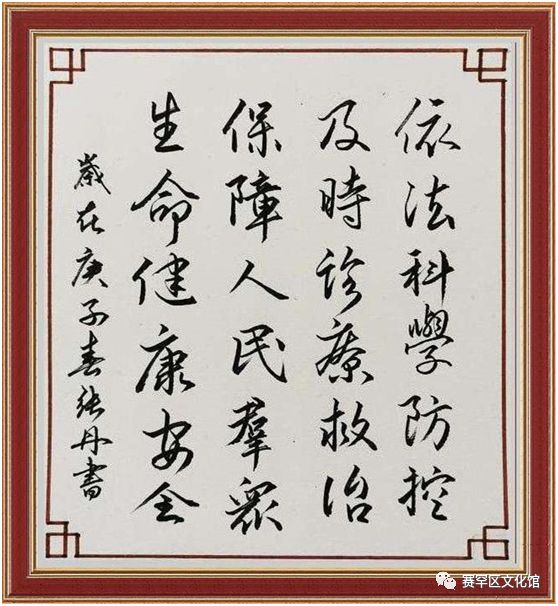 依法科學防控
及時診療救治
保障人民羣眾
生命健康安全
歲在庚子春張丹書
赛罕区文化馆